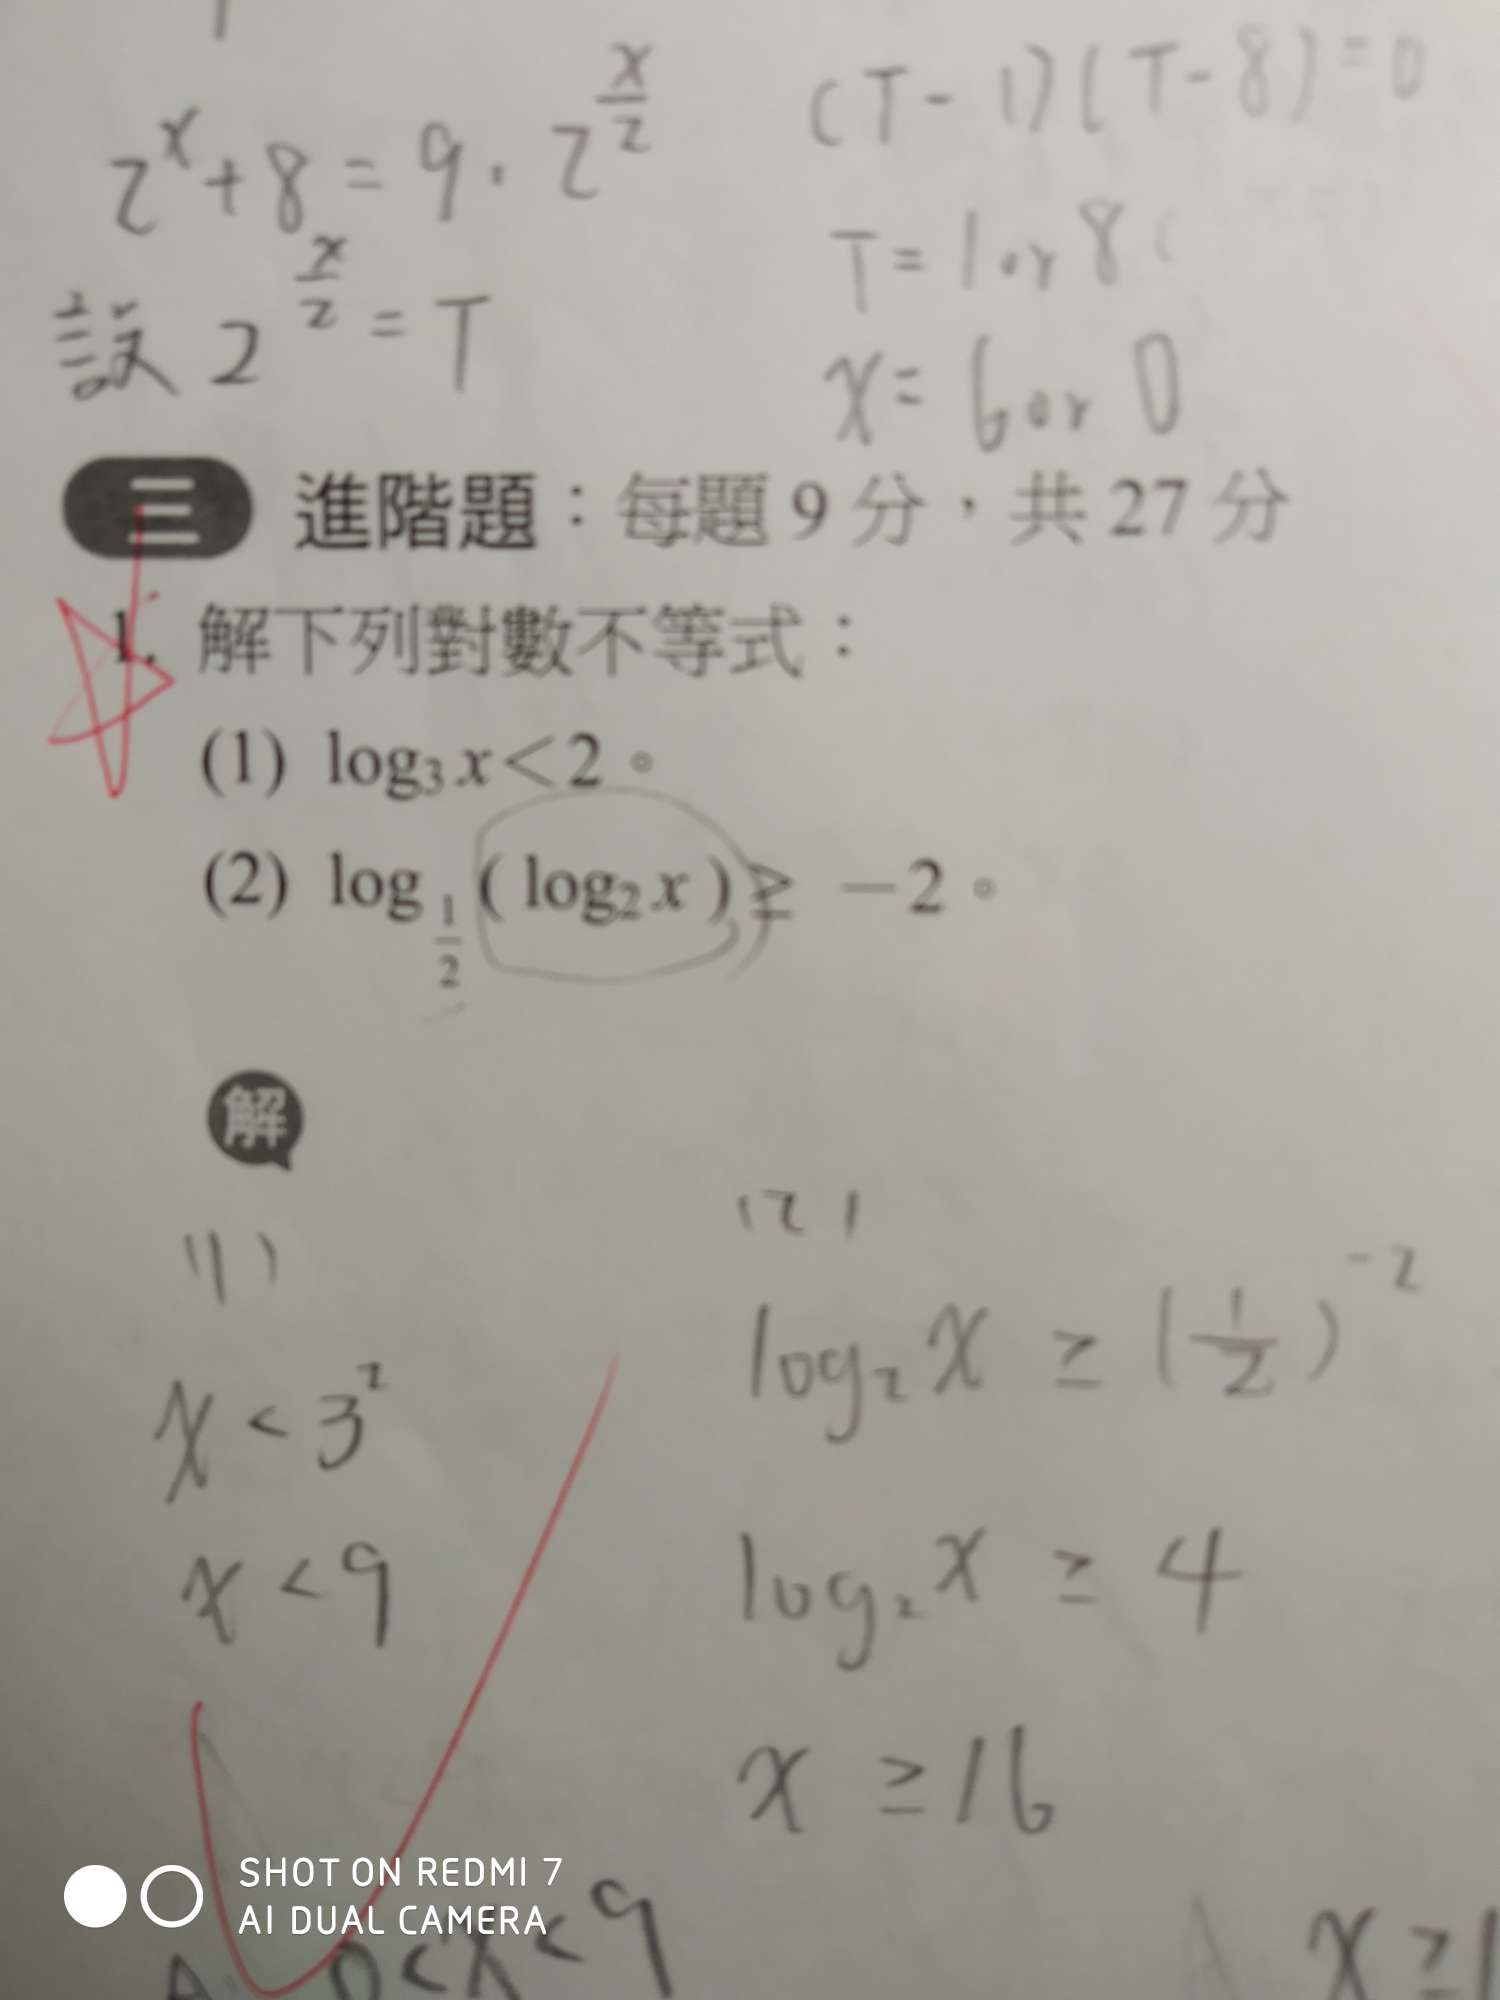 2^x + 8 = 9 · 2^(x/2)
(T - 1)(T - 8) = 0
設 2^(x/2) = T
T = 1 or 8
x = 6 or 0
三 進階題：每題 9 分，共 27 分
1. 解下列對數不等式：
(1) log₃ x < 2。
(2) log_(1/2) ( log₂ x ) ≥ －2。
解
(1)
x < 3²
x < 9
(2)
log₂ x ≥ (1/2)^(-2)
log₂ x ≥ 4
x ≥ 16
A: 0 < x < 9
A x ≥ 1
SHOT ON REDMI 7
AI DUAL CAMERA